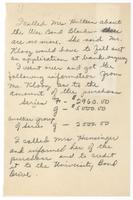 I called Mrs Hulten about
the War Bond blanks
are no more. She said Mr.
Kloxy would have to fill out
an application, at bank, inquiry
I went over and got the
following information from
Mr Kloxy as to the
amount of the purchase
Series F - $2960.00
G - $5000.00
Another group
G series - 2500.00
I called Mrs Hensinger
and informed her of the
purchase and to credit
it to the University Bond
Drive.